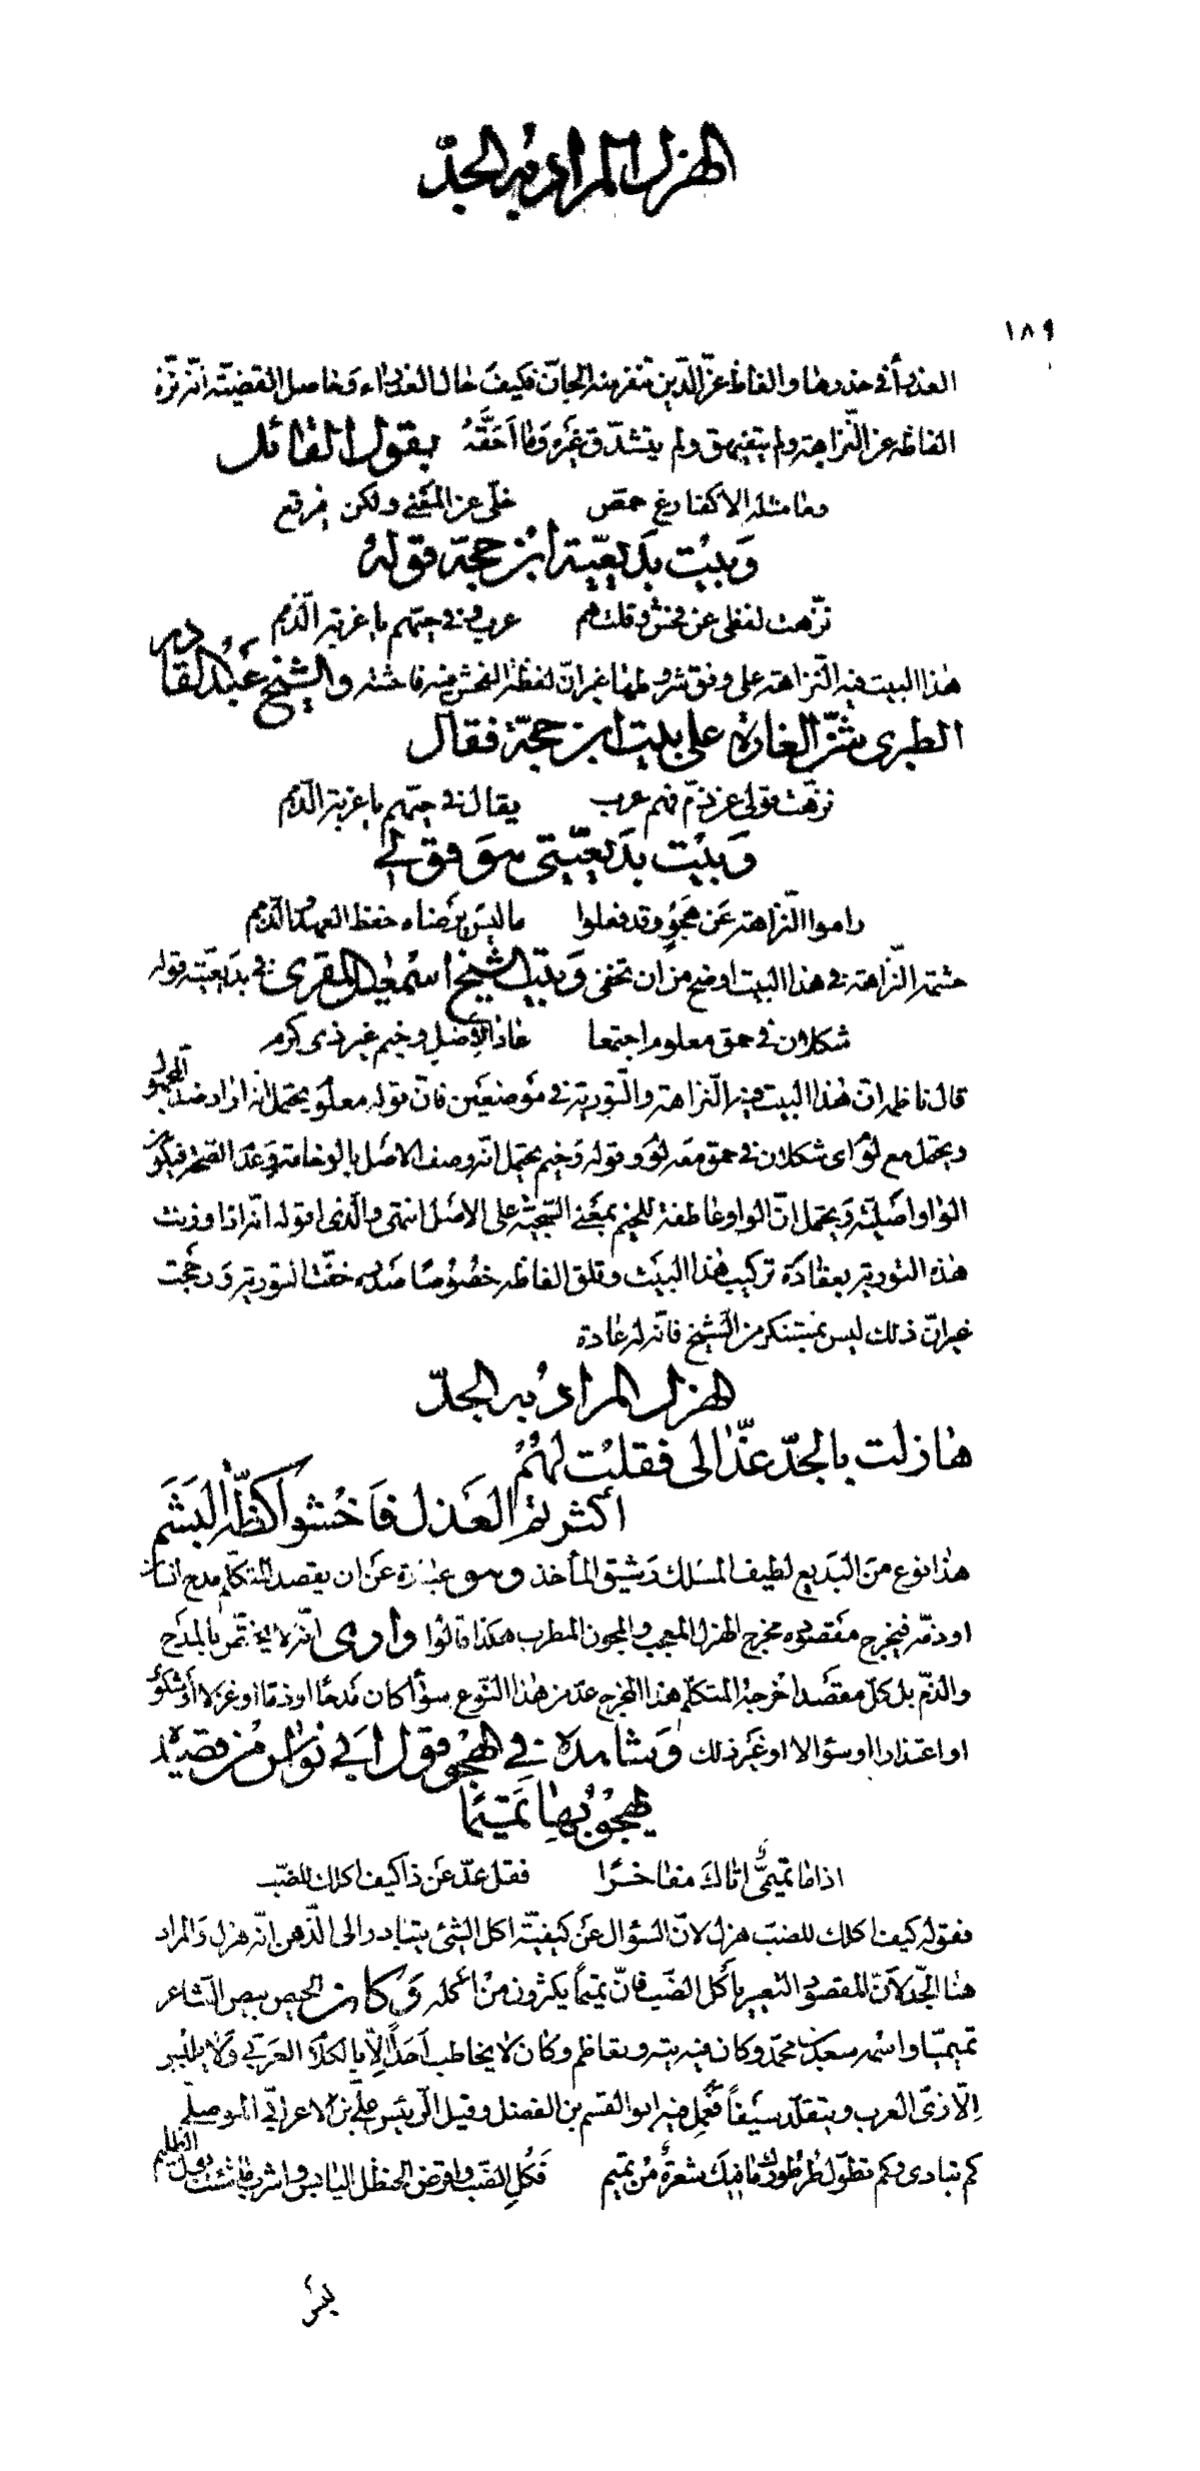 الهزل المراد به الجدّ
١٨٩
العذراء في خدرها والفاظ عزّ الدّين تنفر منه الجانّ فكيف حال العذراء وحاصل القضيّة انّه نزّه
الفاظه عن النّزاهة ولم يتفيهق ولم يتشدّق غيره وما احقّه بقول القائل
وما مثله الا كفارغ حمّص خلّي عن المعنى ولكن يفرقع
وبيت بديعيّة ابن حجة قوله
نزّهت لفظي عن فحش وقلت هم عرب وفي حيّهم يا غربة الذّمم
هذا البيت فيه النّزاهة على وفق شروطها غير انّ لفظة الفحش فيه فاحشة والشيخ عبد القادر
الطبري شنّ الغارة على بيت ابن حجّة فقال
نزّهت قولي عن ذمّ فهم عرب يقال في حيّهم يا غربة الذّمم
وبيت بديعيّتي هو قولي
راموا النّزاهة عن هجو وقد فعلوا ما ليس يرضاه حفظ العهد والذّمم
حشمة النّزاهة في هذا البيت اوضح من ان تخفى وبيت الشيخ اسمعيل المقري في بديعيّته قوله
شكلان في حمق معلوم اجتمعا عاذا لاصل وخيم غير ذي كرم
قال ناظمه انّ هذا البيت فيه النّزاهة والتّورية في موضعين فانّ قوله معلوم يحتمل انه اراد ضد المجهول
ويحتمل مع لوم اي شكلان في حمق مع لوم وقوله وخيم يحتمل انّه وصف الاصل بالوخامة وعدم الصحة فيكون
الواو اصليّة ويحتمل انّ الواو عاطفة للخيم بمعنى السّجيّة على الاصل انتهى والّذي اقوله انّه اذا وزنت
هذه التورية بعقادة تركيب هذا البيت وقلق الفاظه خصوصا صدره خفّت التورية ورجحت
غير انّ ذلك ليس بمستنكر من الشّيخ فانّه له عادة
الهزل المراد به الجدّ
هازلت بالجدّ عذّالي فقلت لهم
أكثرتم العذل فاخشوا كظّة البشم
هذا نوع من البديع لطيف المسلك رشيق المأخذ وهو عبارة عن ان يقصد المتكلّم مدح انسان
او ذمّه فيخرج مقصوده مخرج الهزل المعجب والمجون المطرب هكذا قالوا وارى انّه لا يختصّ بالمدح
والذمّ بل كلّ مقصد اخرجه المتكلّم هذا المخرج عدّ من هذا النّوع سواء كان مدحا او ذمّا او غزلا او شكوى
او اعتذارا او سؤالا او غير ذلك وشاهده في الهجو قول ابي نواس من قصيدة
يهجو بها تميما
اذا ما تميميّ اتاك مفاخرا فقل عدّ عن ذا كيف اكلك للضبّ
فقوله كيف اكلك للضبّ هزل لانّ السؤال عن كيفيّة اكل الشئ يتبادر الى الذّهن انّه هزل والمراد
هنا الجدّ لانّ المقصود التعيير باكل الضّب فانّ تميما يكثرون من اكله وكان الحيص بيص الشّاعر
تميميّا واسمه سعد بن محمّد وكان فيه تيه وتعاظم وكان لا يخاطب احدا الّا بالكلام العربي ولا يلبس
الّا زيّ العرب ويتقلّد سيفا فعمل فيه ابو القسم بن الفضل وقيل الرّئيس عليّ بن الاعرابيّ الموصليّ
كم تبادى وكم تطوّل طرطورك ما فيك شعرة من تميم فكل الضّب واقرض الحنظل اليابس واشرب ما شئت بول الظليم
ليس